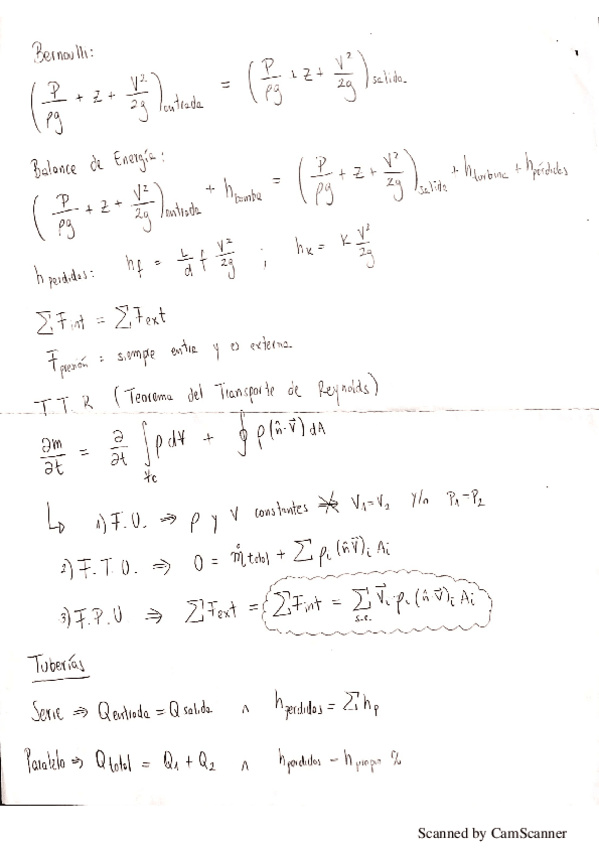 Bernoulli:
(P/ρg + z + V²/2g)entrada = (P/ρg + z + V²/2g)salida.
Balance de Energía:
(P/ρg + z + V²/2g)entrada + hbomba = (P/ρg + z + V²/2g)salida + hturbina + hpérdidas
h perdidas: hf = L/d f V²/2g ; hk = K V²/2g
∑Fint = ∑Fext
Fpresión = siempre entra y es externa.
T.T.R (Teorema del Transporte de Reynolds)
∂m/∂t = ∂/∂t ∫vc ρ dV + ∮ ρ(n̂·V⃗) dA
↳ 1) F.U. ⇒ ρ y V constantes V₁=V₂ y/o P₁=P₂
2) F.T.U. ⇒ 0 = ṁtotal + ∑ρi (n̂·V⃗)i Ai
3) F.P.U ⇒ ∑Fext = ∑Fint = ∑s.c. V⃗i ρi (n̂·V⃗)i Ai
Tuberías
Serie ⇒ Qentrada = Qsalida ∧ hperdidas = ∑hp
Paralelo ⇒ Qtotal = Q₁ + Q₂ ∧ hperdidas =
Scanned by CamScanner